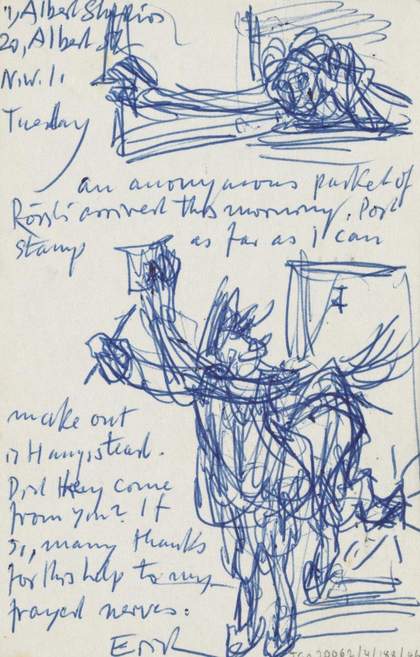 7, Albert Studios
20, Albert St
N.W.1.
Tuesday
an anonymous packet of
Rösti arrived this morning. Post
stamp as far as I can
make out
is Hampstead.
Did they come
from you? If
so, many thanks
for this help to my
frayed nerves.
TGA 20062/4/188/